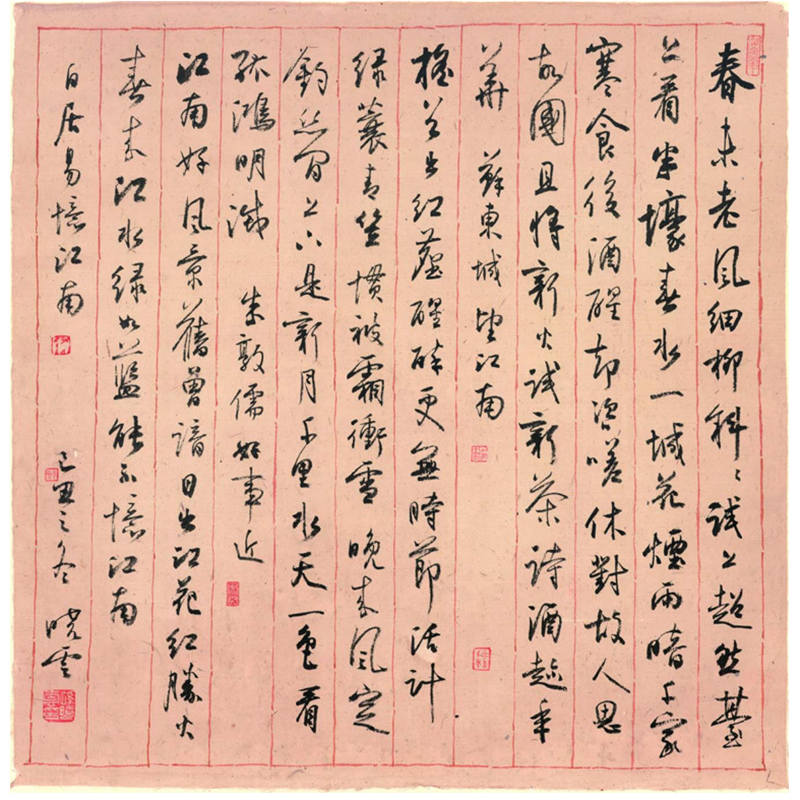 春未老風細柳斜〻試上超然臺
上看半壕春水一城花煙雨暗千家
寒食後酒醒却咨嗟休對故人思
故國且將新火試新茶詩酒趁年
華 蘇東坡望江南
搖首出紅塵醒醉更無時節活計
綠蓑青笠慣被霜衝雪晚來風定
釣絲閒上下是新月千里水天一色看
孤鴻明滅 朱敦儒好事近
江南好風景舊曾諳日出江花紅勝火
春來江水綠如藍能不憶江南
白居易憶江南 己丑之冬 曉雲